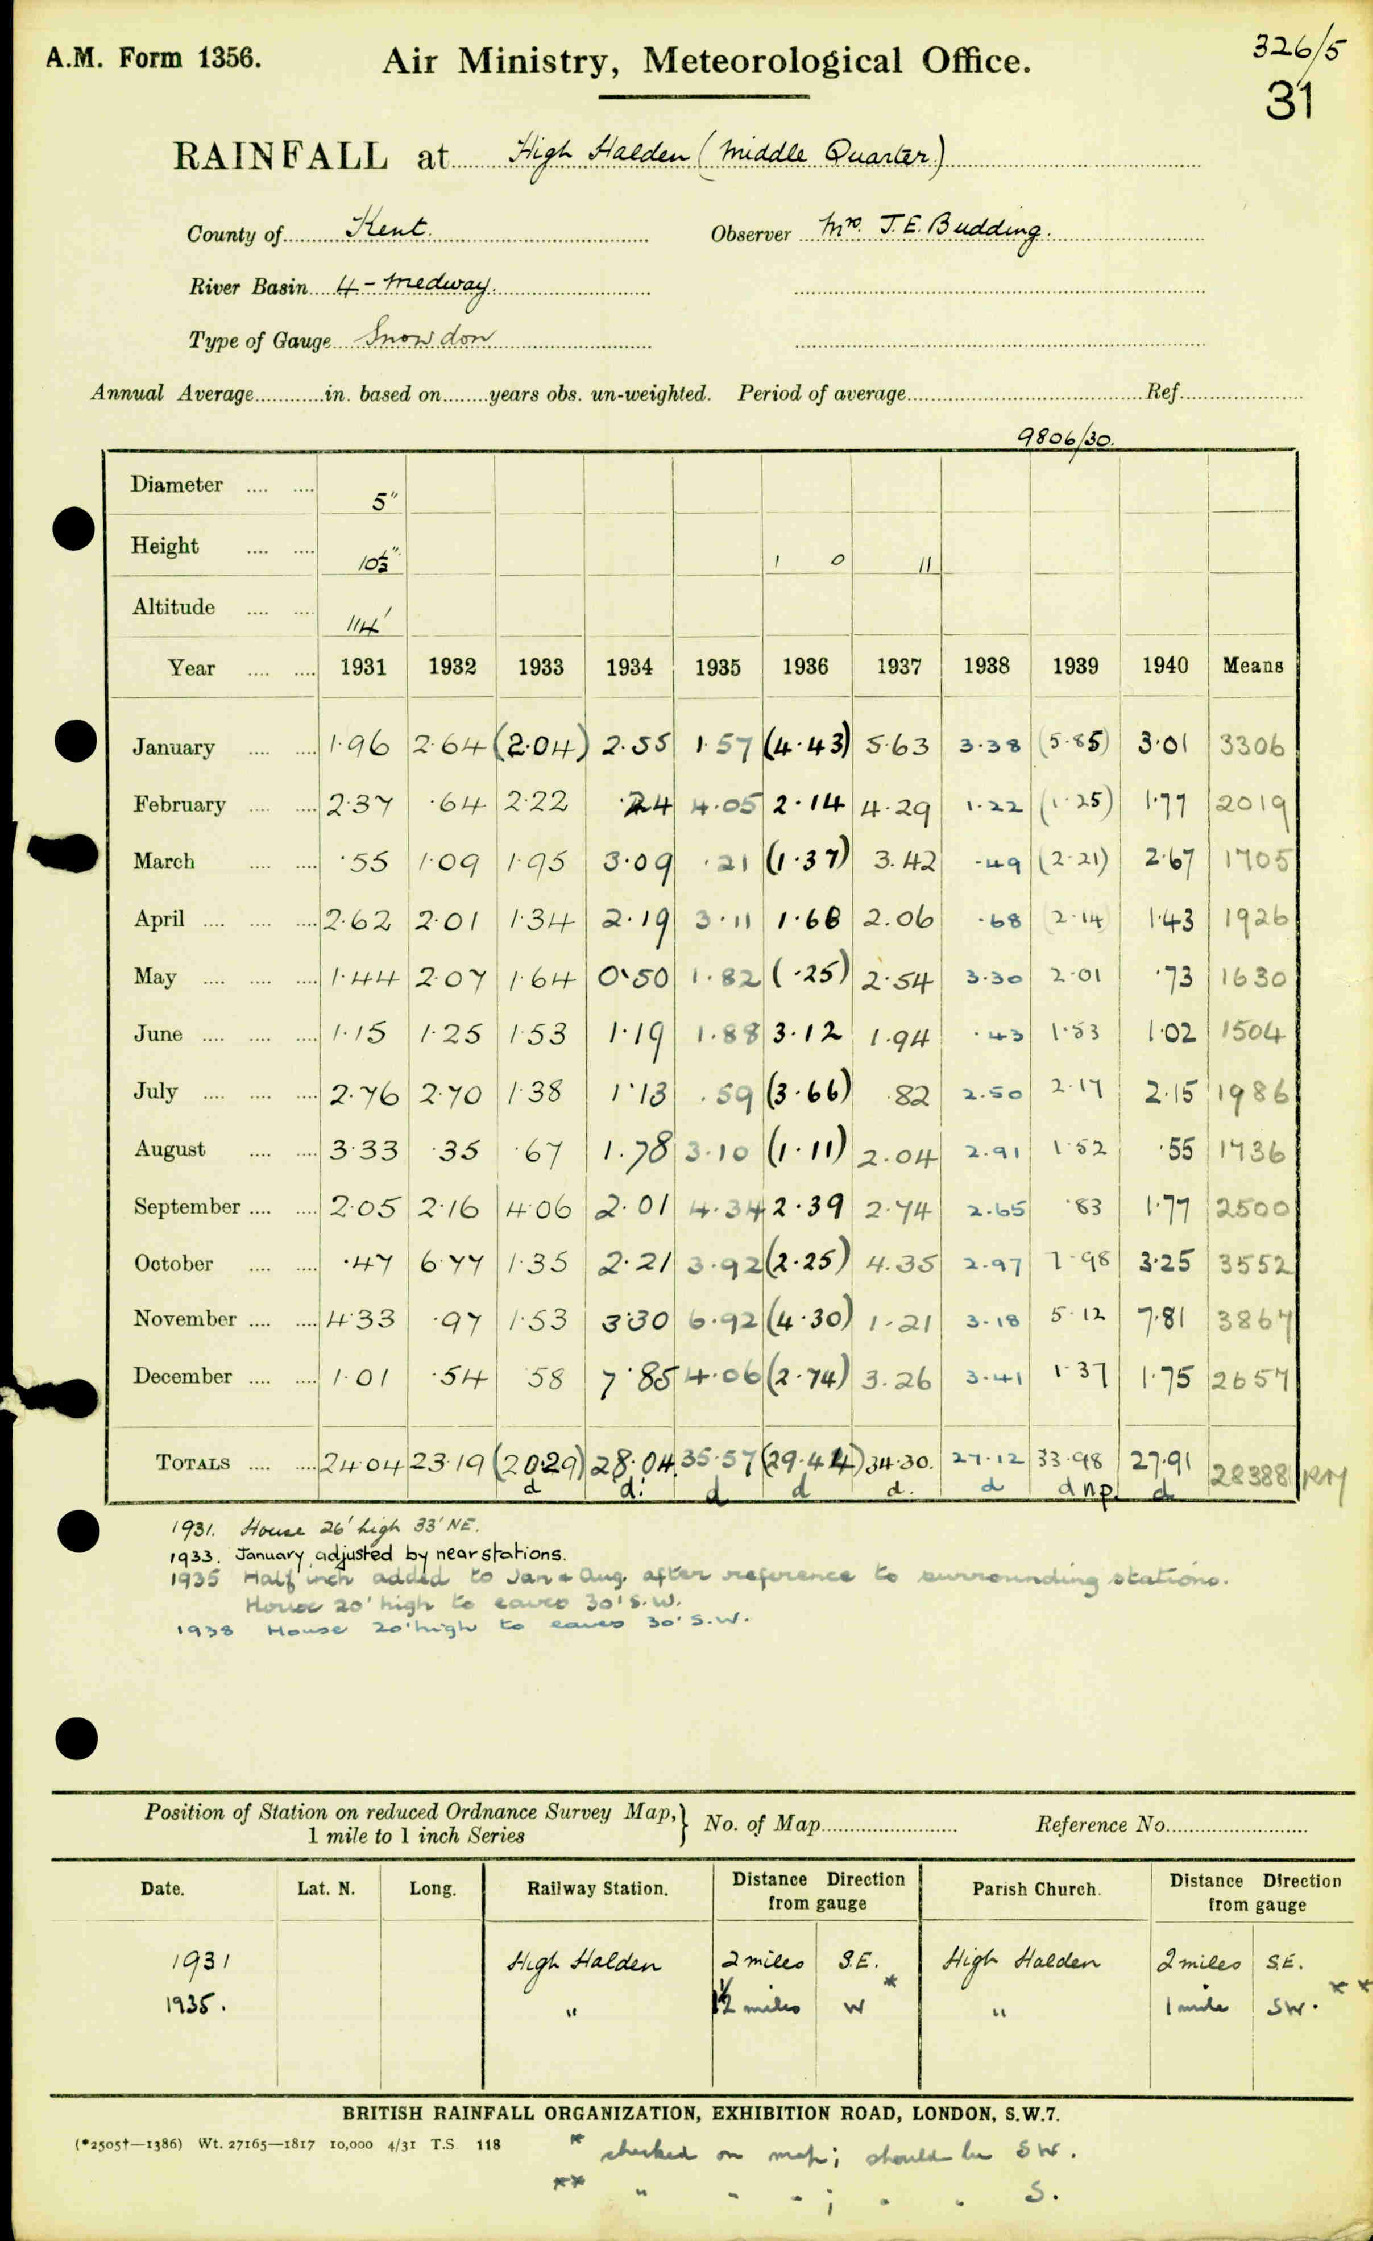 A.M. Form 1356. Air Ministry, Meteorological Office. 326/5
31
RAINFALL at High Halden (Middle Quarter)
County of Kent. Observer Mrs. J.E. Budding.
River Basin 4 - Medway.
Type of Gauge Snowdon
Annual Average in. based on years obs. un-weighted. Period of average Ref.
9806/30.
Diameter 5"
Height 10½" 1 0 11
Altitude 114'
Year 1931 1932 1933 1934 1935 1936 1937 1938 1939 1940 Means
January 1.96 2.64 (2.04) 2.55 1.57 (4.43) 5.63 3.38 (5.85) 3.01 3306
February 2.37 .64 2.22 .24 4.05 2.14 4.29 1.22 (1.25) 1.77 2019
March .55 1.09 1.95 3.09 .21 (1.37) 3.42 .49 (2.21) 2.67 1705
April 2.62 2.01 1.34 2.19 3.11 1.68 2.06 .68 (2.14) 1.43 1926
May 1.44 2.07 1.64 0.50 1.82 (.25) 2.54 3.30 2.01 .73 1630
June 1.15 1.25 1.53 1.19 1.88 3.12 1.94 .43 1.53 1.02 1504
July 2.76 2.70 1.38 1.13 .59 (3.66) .82 2.50 2.17 2.15 1986
August 3.33 .35 .67 1.78 3.10 (1.11) 2.04 2.91 1.52 .55 1736
September 2.05 2.16 4.06 2.01 4.34 2.39 2.74 2.65 .83 1.77 2500
October .47 6.77 1.35 2.21 3.92 (2.25) 4.35 2.97 7.98 3.25 3552
November 4.33 .97 1.53 3.30 6.92 (4.30) 1.21 3.18 5.12 7.81 3867
December 1.01 .54 .58 7.85 4.06 (2.74) 3.26 3.41 1.37 1.75 2657
TOTALS 24.04 23.19 (20.29) 28.04 35.57 (29.44) 34.30. 27.12 33.98 27.91 28388
d d. d d d. d d n.p. d
1931. House 26' high 33' NE.
1933. January adjusted by near stations.
1935 Half inch added to Jan & Aug. after reference to surrounding stations.
House 20' high to eaves 30' S.W.
1938 House 20' high to eaves 30' S.W.
Position of Station on reduced Ordnance Survey Map,} No. of Map Reference No.
1 mile to 1 inch Series
Date. Lat. N. Long. Railway Station. Distance Direction from gauge Parish Church. Distance Direction from gauge
1931 High Halden 2 miles S.E. High Halden 2 miles S.E.
1935. " 1½ miles W * " 1 mile SW. **
BRITISH RAINFALL ORGANIZATION, EXHIBITION ROAD, LONDON, S.W.7.
(*2505†—1386) Wt. 27165—1817 10,000 4/31 T.S. 118
* checked on map; should be SW.
** " " " ; " " S.